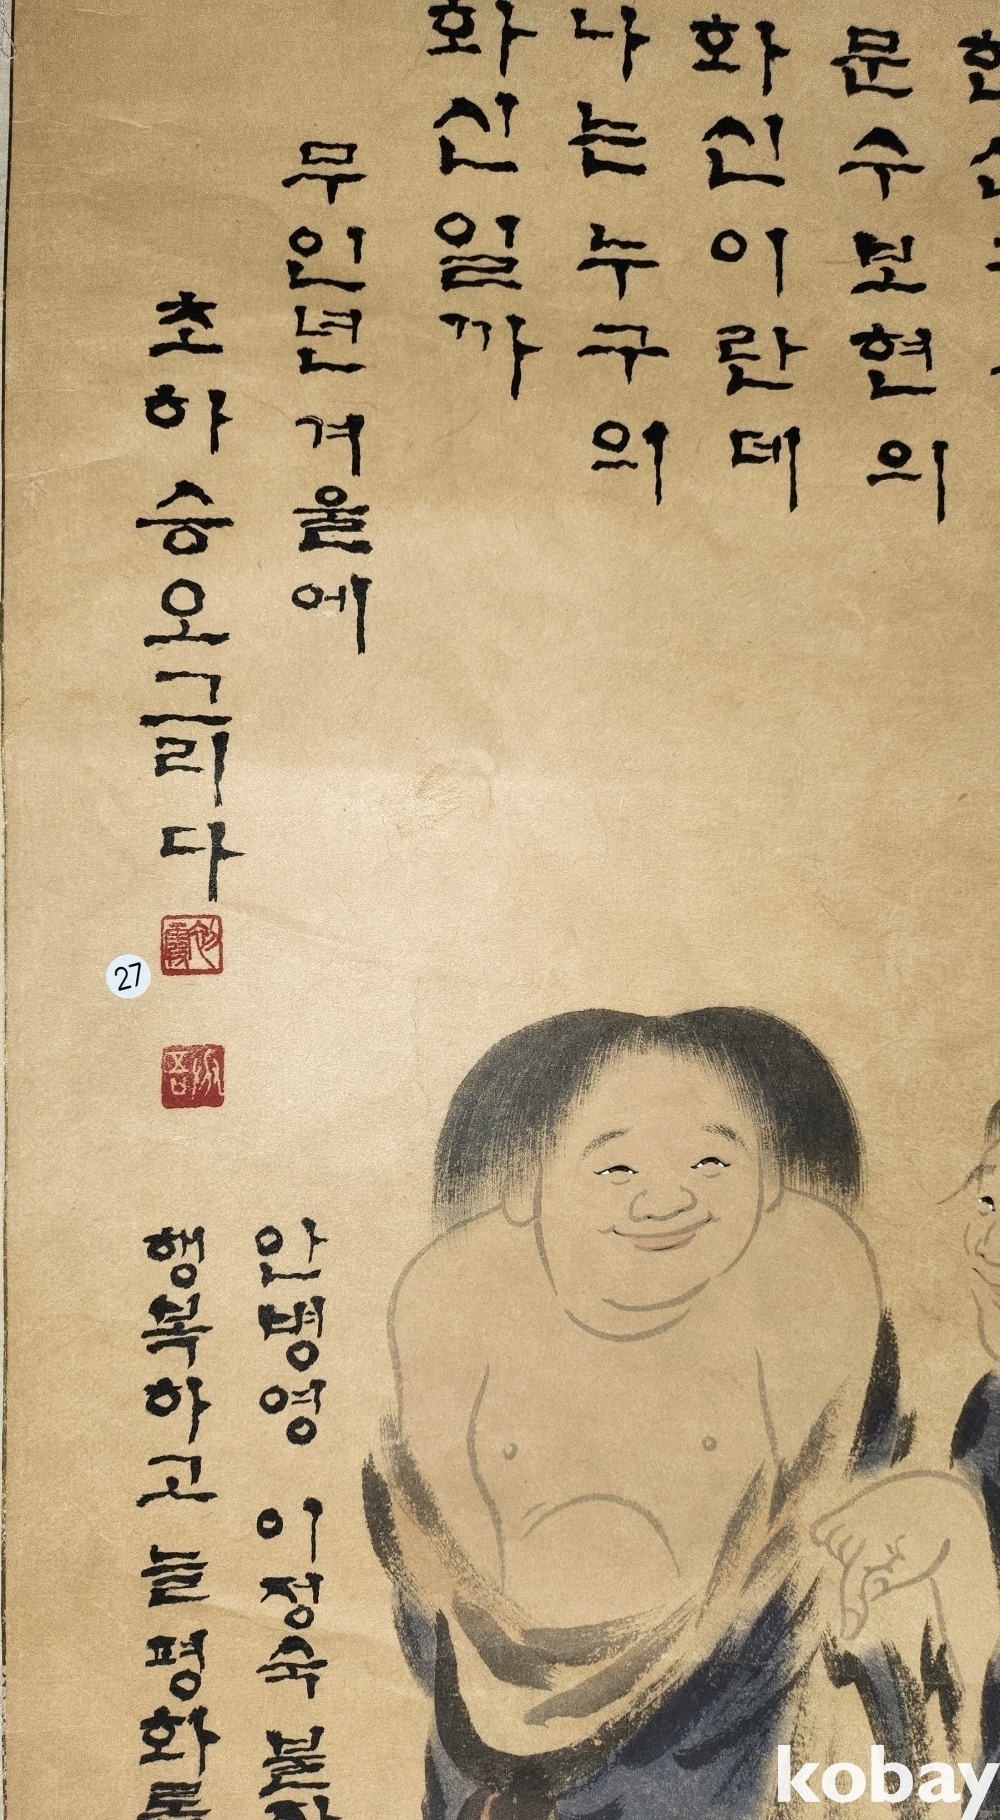 한
문수보현의
화신이란데
나는누구의
화신일까
무인년 겨울에
초하승오그리다
27
안병영 이정숙 불
행복하고 늘 평화로
kobay